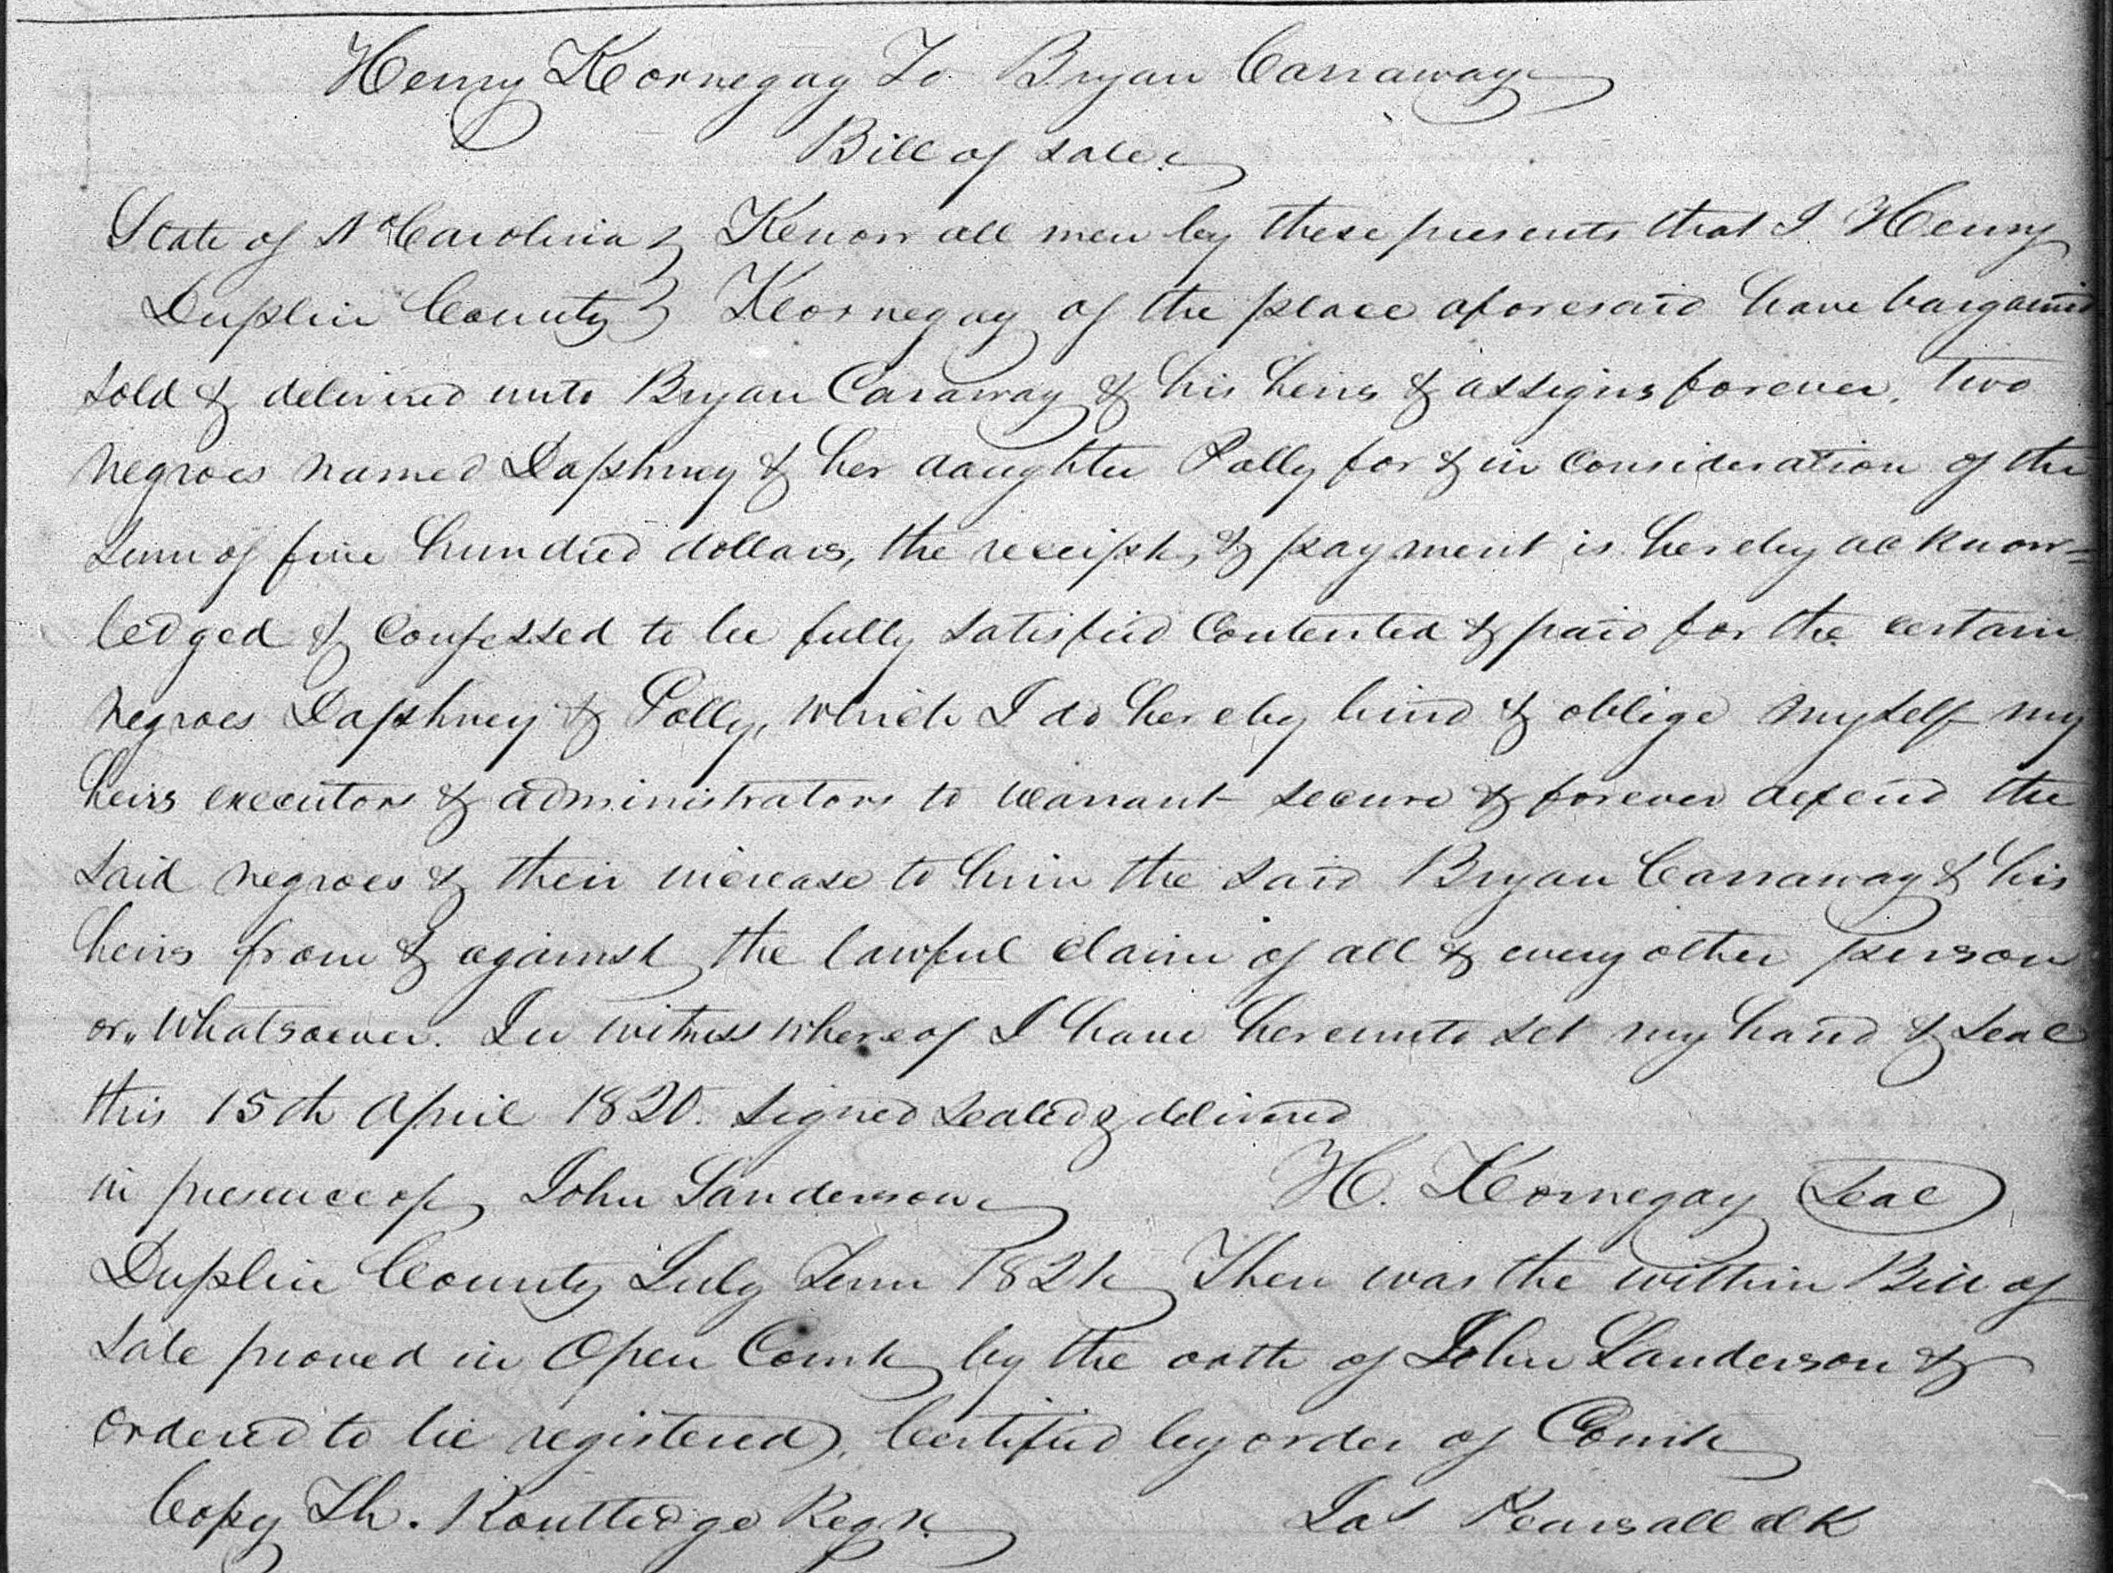 Henry Kornegay To Bryan Carraway
Bill of Sale
State of No Carolina } Know all men by these presents that I Henry
Duplin County } Kornegay of the place aforesaid have bargained
sold & delivered unto Bryan Caraway & his heirs & assigns forever, two
negroes named Daphney & her daughter Polly for & in Consideration of the
Sum of five hundred dollars, the receipt & payment is hereby acknow=
ledged & Confessed to be fully satisfied Contented & paid for the certain
negroes Daphney & Polly, which I do hereby bind & oblige myself my
heirs executors & administrators to warrant secure & forever defend the
said negroes & their increase to him the said Bryan Carraway & his
heirs from & against the lawful claim of all & every other person
or,, whatsoever. In witness whereof I have hereunto set my hand & seal
this 15th April 1820. Signed Sealed & delivered
in presence of John Sanderson H. Kornegay Seal
Duplin County July Term 1821 Then was the within Bill of
Sale proved in Open Court by the oath of John Sanderson &
ordered to be registered, Certified by order of Court
Copy Th. Routledge Regr. Jas Pearsall clk